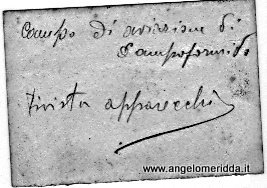 Campo di aviazione di
Campoformido
rivista apparecchi
www.angelomeridda.it